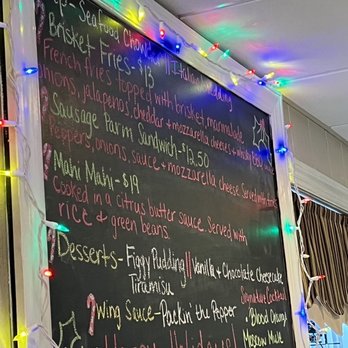 Seafood Chowder // Italian Wedding
Brisket Fries - $13
French fries topped with brisket, marmalade
onions, jalapeños, cheddar + mozzarella cheeses + whiskey
Sausage Parm Sandwich - $12.50
Peppers, onions, sauce + mozzarella cheese. Served with
Mahi Mahi - $19
Cooked in a citrus butter sauce. Served with
rice & green beans.
Desserts - Figgy Pudding // Vanilla + Chocolate Cheesecake
Tiramisu
Signature Cocktail
Wing Sauce - Packin' the Pepper
Blood Orange
Moscow Mule
Happy Holidays!